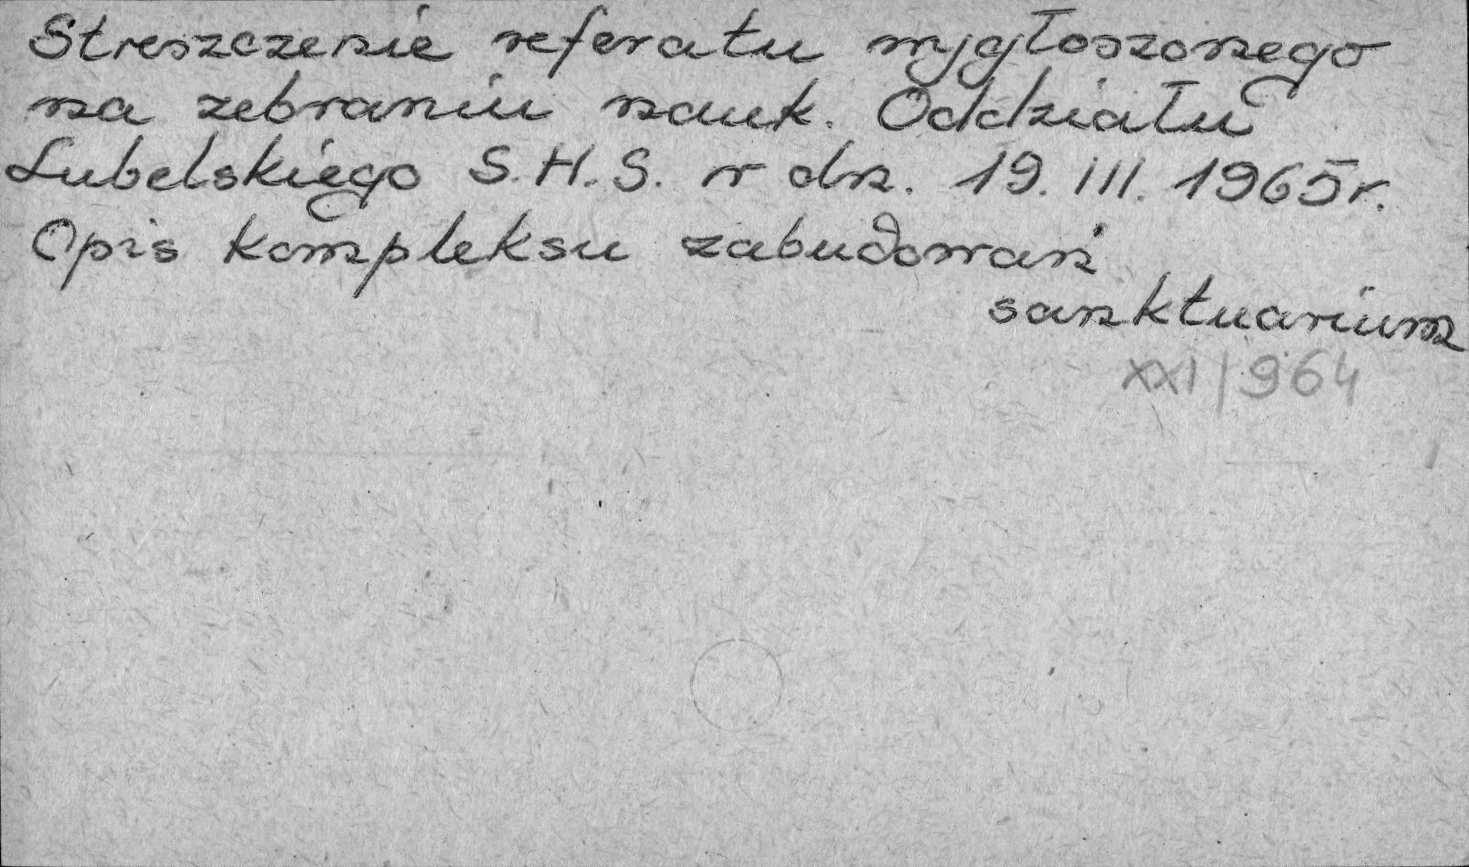 Streszczenie referatu wygłoszonego
na zebraniu nauk. Oddziału
Lubelskiego S.H.S. w dn. 19.III.1965r.
Opis kompleksu zabudowań
sanktuarium
XXI/964